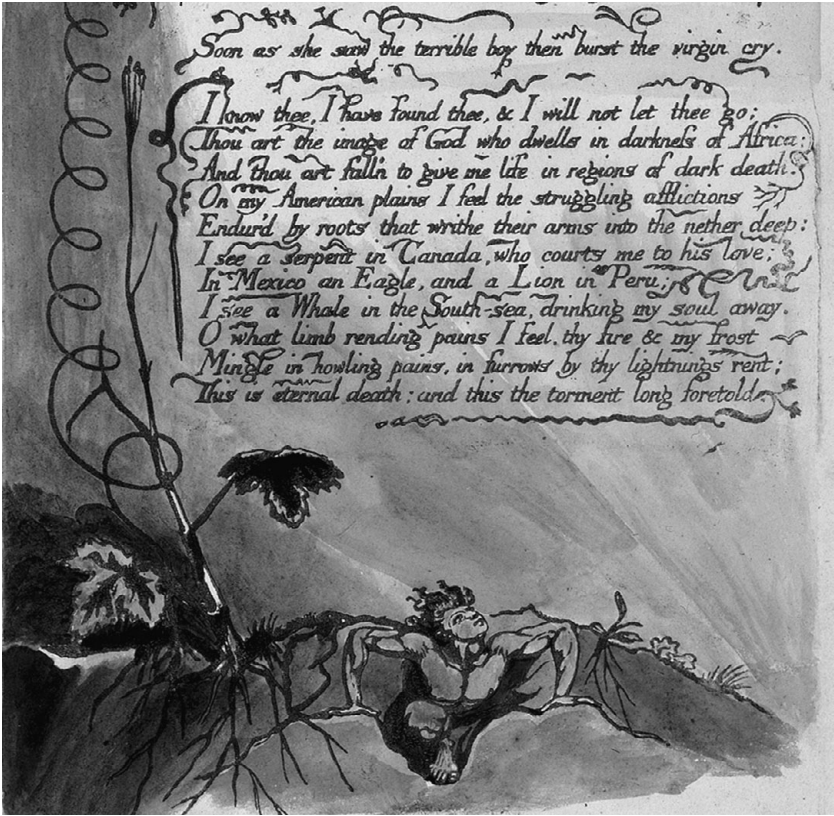 Soon as she saw the terrible boy then burst the virgin cry.
I know thee, I have found thee, & I will not let thee go;
Thou art the image of God who dwells in darkneſs of Africa;
And thou art fall'n to give me life in regions of dark death.
On my American plains I feel the struggling afflictions
Endur'd by roots that writhe their arms into the nether deep:
I see a serpent in Canada, who courts me to his love;
In Mexico an Eagle, and a Lion in Peru;
I see a Whale in the South-sea, drinking my soul away.
O what limb rending pains I feel. thy fire & my frost
Mingle in howling pains, in furrows by thy lightnings rent;
This is eternal death; and this the torment long foretold.